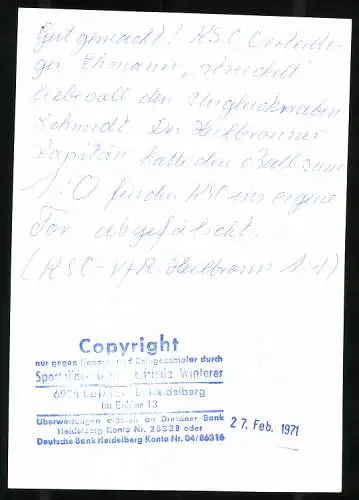 Gut gemacht! KSC Verteidi-
ger Ehmann „streichelt“
liebevoll den Unglücksraben
Schmidt. Der Heilbronner
Kapitän hatte den Ball zum
1:0 für den KSC ins eigene
Tor abgefälscht.
(KSC-VfR Heilbronn 1:1)
Copyright
nur gegen Honorar und Belegexemplar durch
Winterer
Heidelberg
Im Eichler 13
Überweisungen erbeten an Dresdner Bank
Heidelberg Konto Nr. 25338 oder
Deutsche Bank Heidelberg Konto Nr. 04/86316
27. Feb. 1971